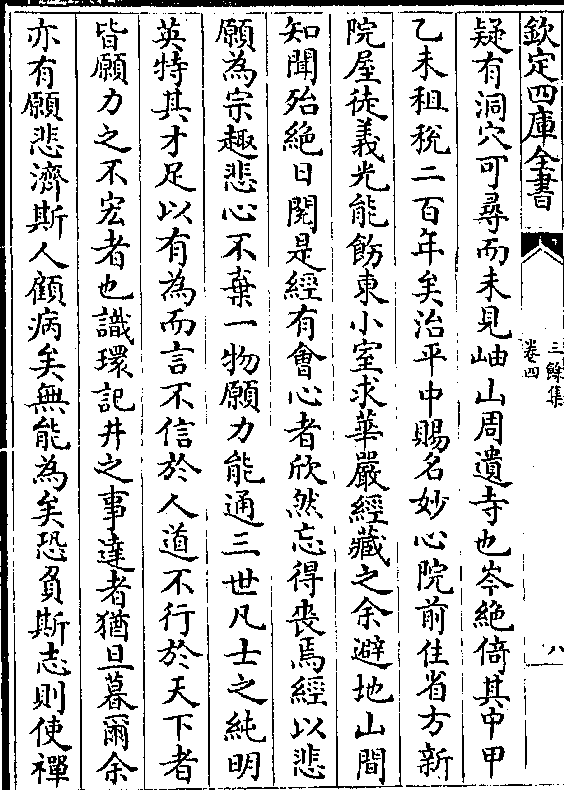 欽定四庫全書
三餘集
卷四
八
疑有洞穴可尋而未見岫山周遺寺也岑絶倚其中甲
乙未租稅二百年矣治平中賜名妙心院前住省方新
院屋徒義光能飭東小室求華嚴經藏之余避地山間
知聞殆絶日閱是經有會心者欣然忘得喪焉經以悲
願為宗趣悲心不棄一物願力能通三世凡士之純明
英特其才足以有為而言不信於人道不行於天下者
皆願力之不宏者也識環記井之事達者猶旦暮爾余
亦有願悲濟斯人顧病矣無能為矣恐負斯志則使禪